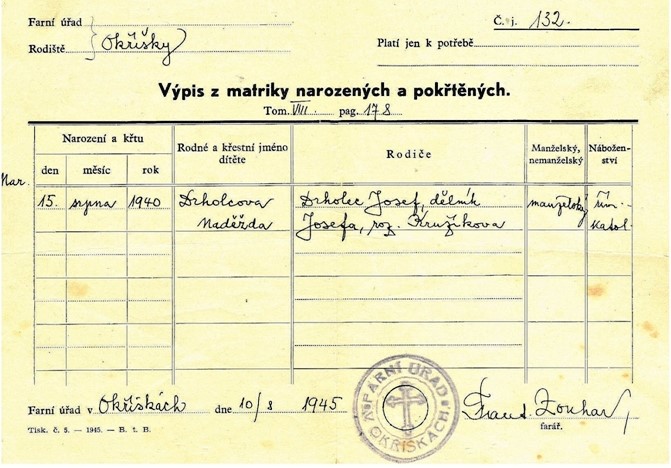 Farní úřad
Rodiště
Okříšky
Č. j. 132.
Platí jen k potřebě
Výpis z matriky narozených a pokřtěných.
Tom. VIII. pag. 178
Narození a křtu
den měsíc rok
Rodné a křestní jméno dítěte
Rodiče
Manželský, nemanželský
Nábožen-
ství
Nar. 15. srpna 1940 Drholcova Drholec Josef, dělník manželský řím.-
Naděžda Josefa, roz. Kružíkova katol.
Farní úřad v Okříškách dne 10/8 1945
FARNÍ ÚŘAD V OKŘÍŠKÁCH
Frant. Zouhar
farář.
Tisk. č. 5. — 1945. — B. t. B.